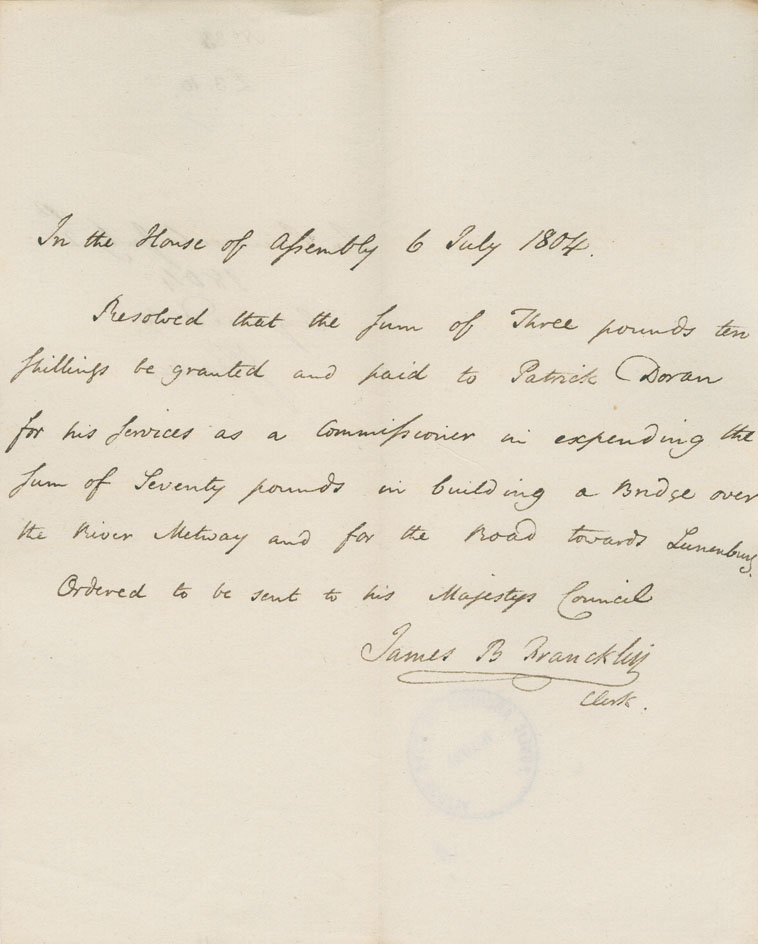 In the House of Assembly 6 July 1804.
Resolved that the sum of Three pounds ten
shillings be granted and paid to Patrick Doran
for his services as a Commissioner in expending the
sum of Seventy pounds in building a Bridge over
the River Metway and for the Road towards Lunenburg.
Ordered to be sent to his Majestys Council
James B Francklin
Clerk.